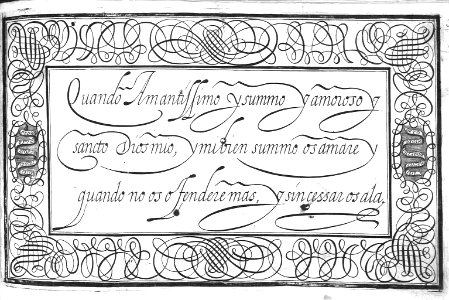 Quando Amantissimo y summo y amoroso y
sancto Dios mio, y mi bien summo os amare y
quando no os offendere mas, y sin cessar os ala,